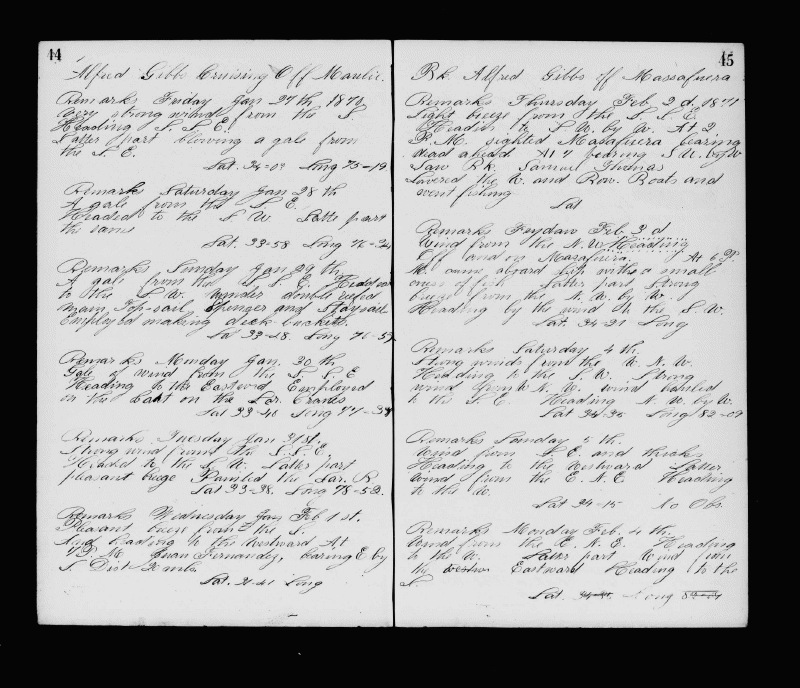 44
Alfred Gibbs Cruising Off Maulie.
Remarks Friday Jan 27th, 1870
very strong wind from the S
Heading S. S. E.
Latter part blowing a gale from
the S. E.
Lat. 34-02 Long 75-19
Remarks Saturday Jan 28th
A gale from the S. E.
Headed to the S W. Latter part
the same
Lat. 33-58 Long 76-24
Remarks Sunday Jan 29th
A gale from the S. S. E.
to the S. W. under double reefed
main Top-sail Spenser and Staysail
Employed making deck buckets.
Lat 33-48. Long 76-5
Remarks Monday Jan. 30th
Gale of wind from the S. S. E
Heading to the Eastward Employed
on the boat on the Lar. Cranes
Lat 33-40 Long 77-38
Remarks Tuesday Jan 31st.
Strong wind from the S. S. E.
Headed to the S. W. Latter part
pleasant breeze Painted the Lar. B.
Lat 33-38. Long 78-52.
Remarks Wednesday Feb 1st.
Pleasant breeze from the S.
and heading to the Westward At
7 P. M. Juan Fernandez, bearing E by
S. Dist 20 mls.
Lat. Long
45
Bk. Alfred Gibbs off Massafuera
Remarks Thursday Feb 2d. 1871
Light breeze from the S. S. E.
Headin to S. W. by W. At 2
P. M. sighted Masafuera bearing
dead ahead At 4 bearing S. W. by W
Saw Bk. Samuel Thomas
Lowered the W. and Bow. Boats and
went fishing
Lat
Remarks Feb. 3d
Wind from the N. W. Heading
Off and on Masafuera. At 6 P.
M. came aboard ship with a small
of fish Latter part Strong
breeze from the N. W. by W.
Heading by the wind to the S. W.
Lat. 34-21 Long
Remarks Saturday 4th.
Strong winds from the W. N. W.
Heading to the S. W. Strong
wind from W N. W. wind hauled
to the S. E. Heading N. W. by W.
Lat 34-35 Long 82-09
Remarks Sunday 5th.
Wind from S. E. and
Heading to the Westward Latter
Wind from the E. N. E Heading
to the do.
Lat 34-15 No Obs.
Remarks Monday Feb. 6th.
Wind from the E. N. E. Heading
to the W. Latter part Wind from
the Eastward Heading to the
S.
Lat. Long